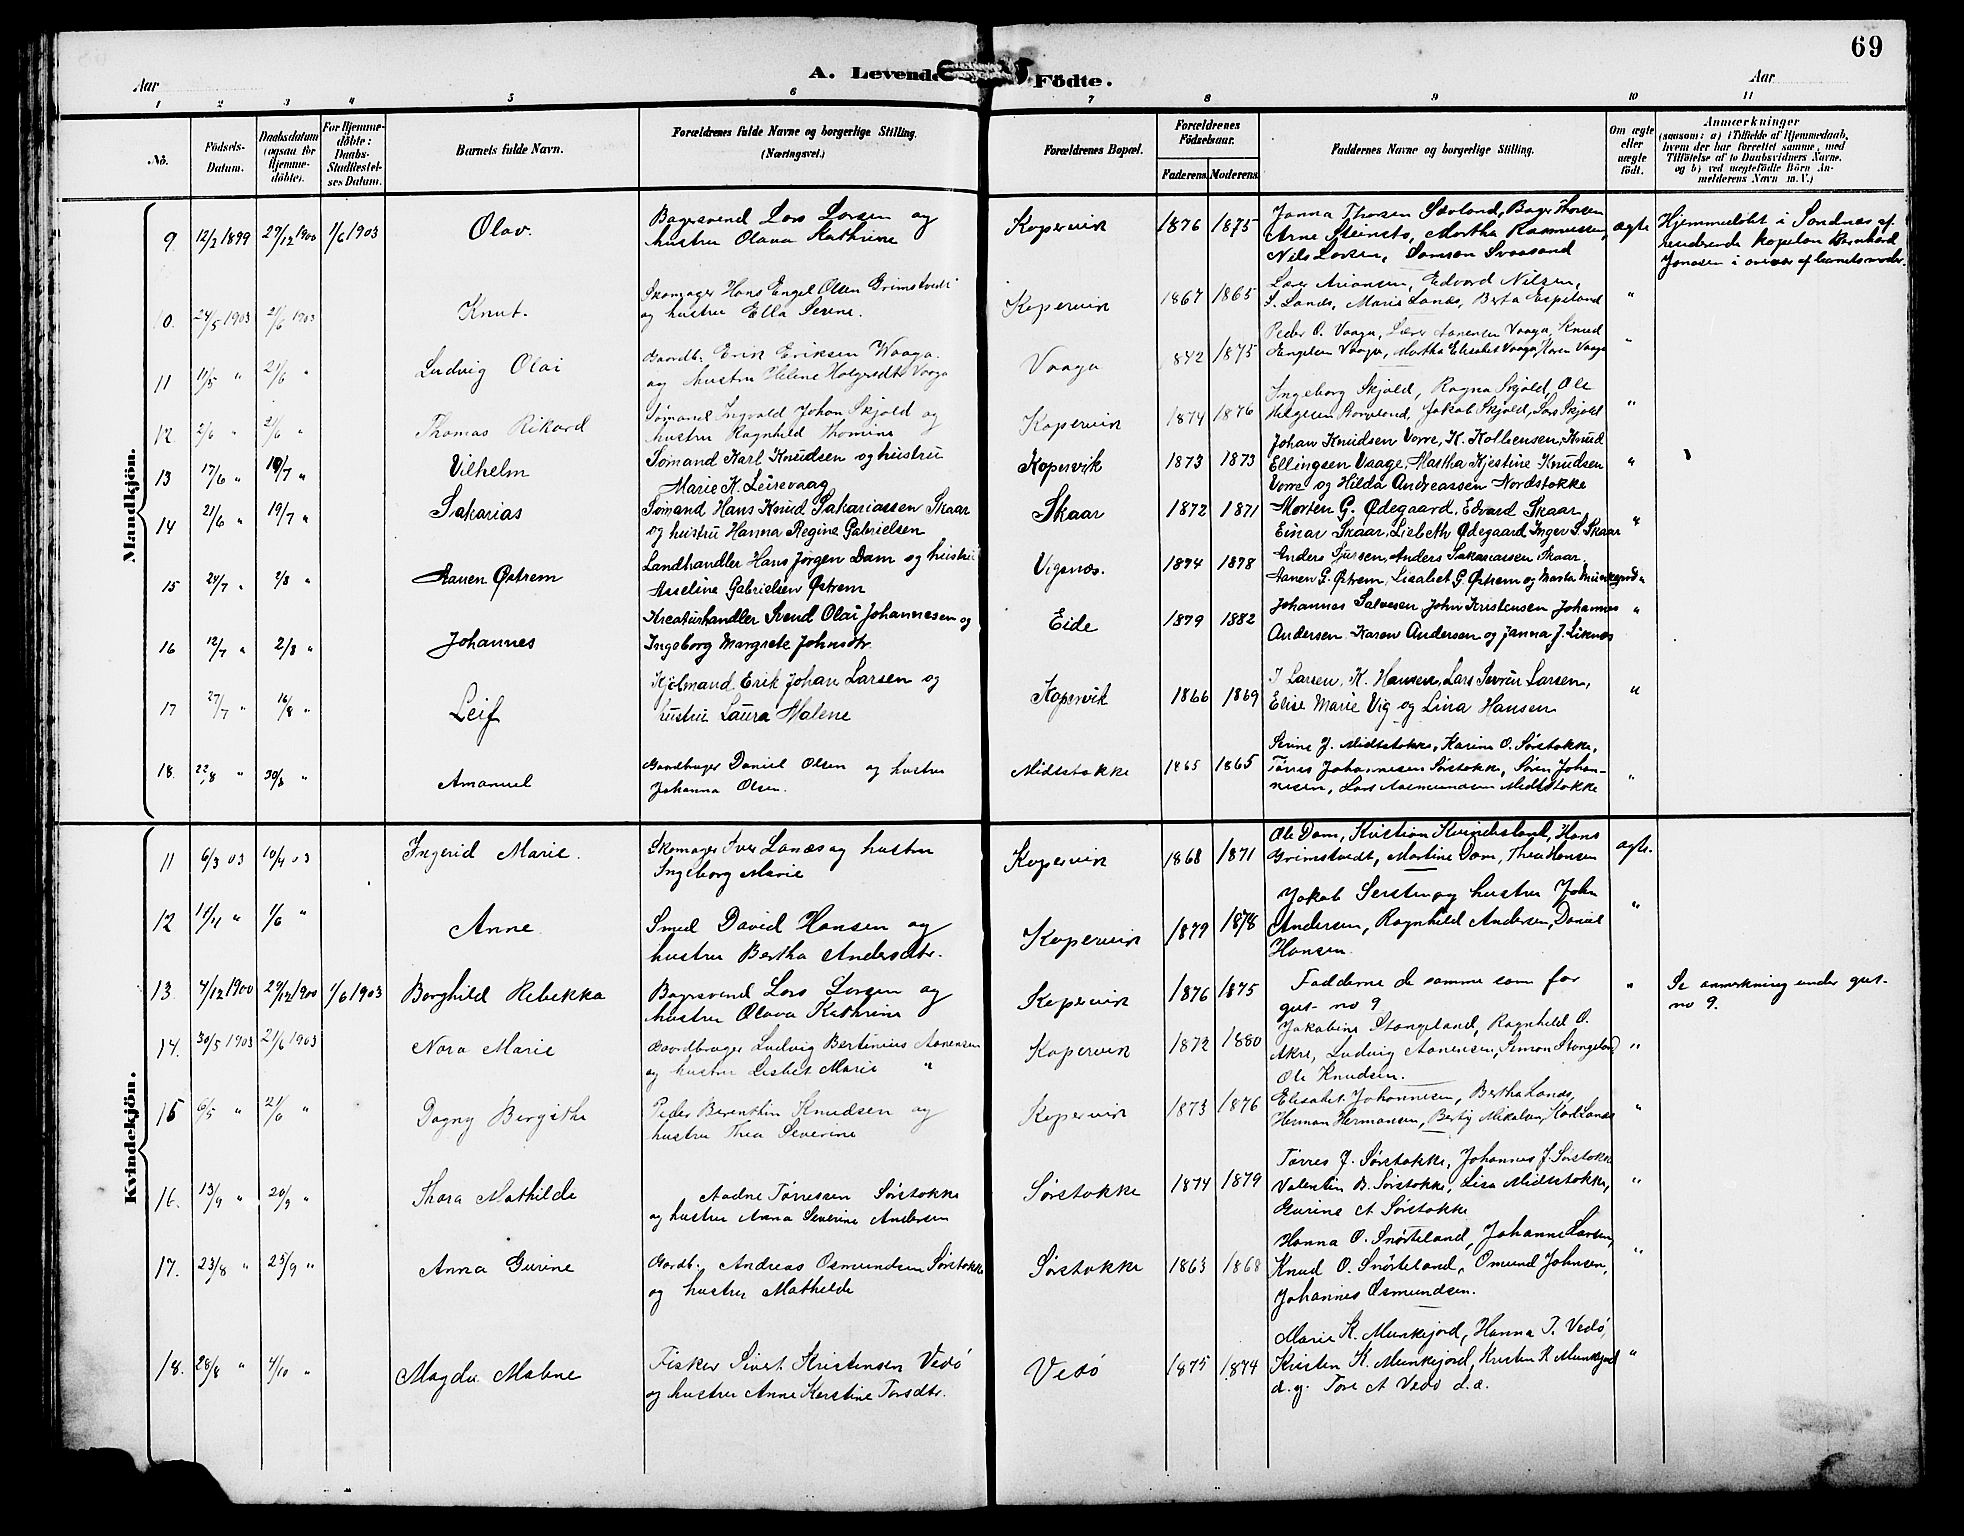 69
Aar
A. Levende Födte.
Aar
1 2 3 4 5 6 7 8 9 10 11
No.
Födsels-Datum.
Daabsdatum (ogsaa for Hjemme-döbte).
For Hjemme-döbte: Daabs-Stadfestel-ses Datum.
Barnets fulde Navn.
Forældrenes fulde Navne og borgerlige Stilling. (Næringsvei.)
Forældrenes Bopæl.
Forældrenes Födselsaar.
Faderens. Moderens.
Faddernes Navne og borgerlige Stilling.
Om ægte eller uægte födt.
Anmærkninger
(saasom: a) i Tilfælde af Hjemmedaab, hvem der har forrettet samme, med Tilföielse af to Daabsvidners Navne, og b) ved uægtefödte Börn An-melderens Navn m. V.)
Mandkjön.
9 12/2 1899 29/12 1900 1/6 1903 Olav. Bagersvend Lars Larsen og hustru Olava Kathrine Kopervik 1876 1875 Janna Thorsen Sævland, Bager Thorsen Arne Steinsto, Martha Rasmussen, Nils Larsen, Samson Svaasand ægte Hjemmedøbt i Sandnæs af residerende kapelan Bernhard Jonasen i overvær af barnets moder.
10. 24/5 1903 21/6 1903 Knut. Skomager Hans Engel Olsen Grimstvedt og hustru Ella Serine. Kopervik 1867 1865 Lærer Arionsen, Edvard Nilsen, S. Lanæs, Maria Lanæs, Berta Espeland "
11 11/5 " 21/6 " Ludvig Olai Gaardb. Erik Eriksen Waaga. og hustru Helene Holgersdtr Vaaga Vaaga 1842 1875 Peder O. Vaaga, Lærer Aanensen Vaaga, Knud Engelsen Vaaga, Martha Elisabet Vaaga, Karen Vaaga "
12 2/6 " 21/6 " Thomas Rikard Sømand Ingvald Johan Skjold og hustru Ragnhild Thomine Kopervik 1874 1876 Ingeborg Skjold, Ragna Skjold, Ole Helgesen, Jakob Skjold, Lars Skjold "
13 17/6 " 19/7 " Vilhelm Sømand Karl Knudsen og hustru Marie K. Leirevaag Kopervik 1873 1873 Johan Knudsen Vorre, K. Kolbensen, Knud Ellingsen Vaage, Martha Kjestine Knudsen Vorre og Hilda Andreassen Nordstokke "
14 21/6 " 19/7 " Sakarias Sømand Hans Knud Sakariassen Skaar og hustru Hanna Regine Gabrielsen Skaar 1872 1871 Morten G. Ødegaard, Edvard Skaar, Einar Skaar, Lisbeth Ødegaard, Inger S. Skaar "
15 24/7 " 2/8 " Aanen Østrem Landhandler Hans Jørgen Dam og hustru Asseline Gabrielsen Østrem Vigsnæs. 1874 1878 Anders Sjursen, Anders Sakariassen Skaar, Aanen G. Østrem, Lisabet G. Østrem og Marta Munkejord "
16 12/7 " 2/8 " Johannes Kreaturhandler Svend Olai Johannesen og Ingeborg Margrete Johnsdtr. Eide 1879 1882 Johannes Salvesen John Kristensen Johannes Andersen. Karen Andersen og Janna J. Liknes "
17 27/7 " 16/8 " Leif Kjølmand Erik Johan Larsen og hustru Laura Malene Kopervik 1866 1869 J Larsen, K. Hansen, Lars Severin Larsen, Elise Marie Vig og Lina Hansen "
18. 22/8 " 30/8 " Amanuel Gaardbruger Daniel Olsen og hustru Johanna Olsen. Midtstokke 1865 1865 Serine J. Midtstokke, Karine O. Sørstokke, Tørres Johannesen Sørstokke, Søren Johannesen, Lars Aasmundsen Midtstokke "
Kvindekjön.
11 6/3 03 10/4 03 Ingerid Marie. Skomager Iver Lanæs og hustru Ingeborg Marie Kopervik 1868 1871 Ole Dam, Kristian Kvindesland, Hans Grimstvedt, Martine Dam, Thea Hansen ægte.
12 14/4 " 1/6 " Anne. Smed David Hansen og hustru Bertha Andersdtr. Kopervik 1879 1878 Jakob Sersten og hustru John Andersen, Ragnhild Andersen, Daniel Hansen. "
13 4/12 1900 29/12 1900 1/6 1903 Borghild Rebekka Bagersvend Lars Larsen og hustru Olava Kathrine Kopervik 1876 1875 Fadderne de samme som for gut no 9 " Se anmerkning under gut-no 9.
14. 30/5 1903 21/6 1903 Nora Marie Gaardbruger Ludvig Bertinius Aanensen og hustru Lisbet Marie " Kopervik 1872 1880 Jakobine Stangeland, Ragnhild O. Akre, Ludvig Aanensen, Simon Stangeland, Ole Knudsen. "
15 6/5 " 21/6 " Dagny Bergithe Peder Berenthin Knudsen og hustru Thea Severine Kopervik 1873 1876 Elisabet Johannesen, Bertha Lanæs, Herman Hermansen, Berty Mikalsen, Karl Lanæs "
16. 13/9 " 20/9 " Thora Mathilde Aadne Tørressen Sørstokke og hustru Anna Severine Andersen Sørstokke 1874 1879 Tørres J. Sørstokke, Johannes J. Sørstokke Valentin B. Sørstokke, Lisa Midtstokke, Gurine A Sørstokke "
17. 23/8 " 25/9 " Anna Gurine Gardb. Andreas Osmundsen Sørstokke og hustru Mathilde Sørstokke 1863 1868 Hanna O. Snørteland, Johanne Larsen, Knud O. Snørteland, Omund Johnsen, Johannes Osmundsen. "
18. 28/8 " 4/10 " Magda Malene Fisker Sivert Kristensen Vedø og hustru Anne Kerstine Torsdtr. Vedø 1875 1874 Marie K. Munkejord, Hanna T. Vedø, Kristen K. Munkejord, Kristen R. Munkejord d. y. Tore A Vedø d. æ. "